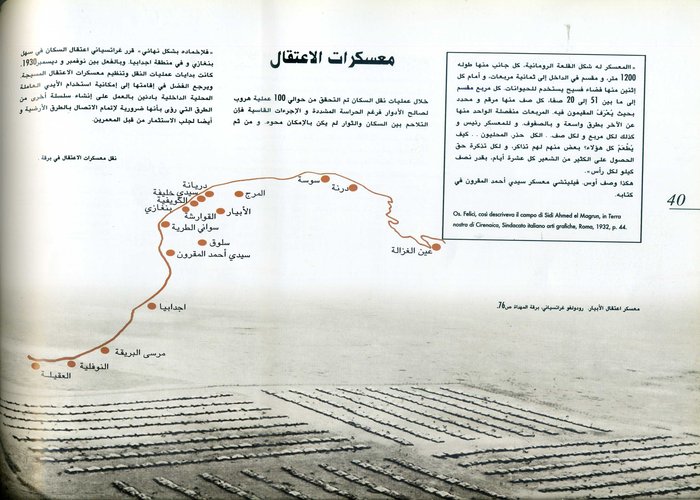 معسكرات الاعتقال
«المعسكر له شكل القلعة الرومانية. كل جانب منها طوله
1200 متر. و مقسم في الداخل إلى ثمانية مربعات. و أمام كل
إثنين منها فضاء فسيح يستخدم للحيوانات. كل مربع مقسم
إلى ما بين 15 إلى 20 صفا. كل صف منها مرقم و محدد
بحيث يَعْرَفُ المقيمون فيه. المربعات منفصلة الواحد منها
عن الآخر بطرق واسعة و بالصفوف. و للمعسكر رئيس و
كذلك لكل مربع و لكل صف. . الكل حذر. المحليون . . كيف
يُطْعَمُ كل هؤلاء؟ بعض منهم لهم تذاكر. و لكل تذكرة حق
الحصول على الكثير من الشعير كل عشرة أيام. بقدر نصف
كيلو لكل رأس».
هكذا وصف أوس. فيليتشي معسكر سيدي أحمد المقرون في
كتابه.
Os. Felici, così descriveva il campo di Sidi Ahmed el Magrun, in Terra
nostra di Cirenaica, Sindacato italiano arti grafiche, Roma, 1932, p. 44.
40
خلال عمليات نقل السكان تم التحقق من حوالي 100 عملية هروب
لصالح الأدوار فرغم الحراسة المشددة و الإجرءات القاسية فإن
التلاحم بين السكان والثوار لم يكن بالإمكان محوه. و من ثم
«فلإخماده بشكل نهائي» قرر غرانسياني اعتقال السكان في سهل
بنغازي و في منطقة اجدابيا. وبالفعل بين نوفمبر و ديسمبر1930.
كانت بدايات عمليات النقل وتنظيم معسكرات الاعتقال المسيجة.
ويرجع الفضل في إقامتها إلى إمكانية استخدام الأيدي العاملة
المحلية الداخلية بأدنين بالعمل على إنشاء سلسلة أخرى من
الطرق التي رؤى بأنها ضرورية لإتمام الاتصال بالطرق الأرضية و
أيضا لجلب الاستثمار من قبل المعمرين.
نقل معسكرات الاعتقال في برقة .
سوسة
درنة
المرج
دريانة
سيدي خليفة
الكويفية
بنغازي
الأبيار
القوارشة
سواني الطرية
سلوق
سيدي أحمد المقرون
عين الغزالة
اجدابيا
مرسى البريقة
النوفلية
العقيلة
معسكر اعتقال الأبيار. رودولفو غراتسياني. برقة المهدأة ص76.